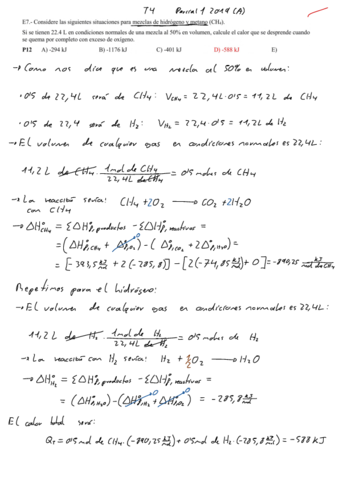 T4 Parcial 1 2019 (A)
E7.- Considere las siguientes situaciones para mezclas de hidrógeno y metano (CH₄).
Si se tienen 22.4 L en condiciones normales de una mezcla al 50% en volumen, calcule el calor que se desprende cuando
se quema por completo con exceso de oxígeno.
P12 A) -294 kJ B) -1176 kJ C) -401 kJ D) -588 kJ E)
→ Como nos dice que es una mezcla al 50% en volumen:
· 0'5 de 22,4L será de CH₄: V_CH₄ = 22,4L·0'5 = 11,2L de CH₄
· 0'5 de 22,4 será de H₂: V_H₂ = 22,4·0'5 = 11,2L de H₂
→ El volumen de cualquier gas en condiciones normales es 22,4L:
11,2L de CH₄ · 1 mol de CH₄ / 22,4L de CH₄ = 0'5 moles de CH₄
→ La reacción sería: CH₄ + 2O₂ → CO₂ + 2H₂O
con CH₄
= [-393,5 kJ/mol + 2(-285,8)] - [2(-74,85 kJ/mol) + 0] = -890,25 kJ/mol de CH₄
Repetimos para el hidrógeno:
→ El volumen de cualquier gas en condiciones normales es 22,4L:
11,2L de H₂ · 1 mol de H₂ / 22,4L de H₂ = 0'5 moles de H₂
→ La reacción con H₂ sería: H₂ + ½O₂ → H₂O
= -285,8 kJ/mol
El calor total será:
Q_T = 0'5 mol de CH₄·(-890,25 kJ/mol) + 0'5 mol de H₂·(-285,8 kJ/mol) = -588 KJ